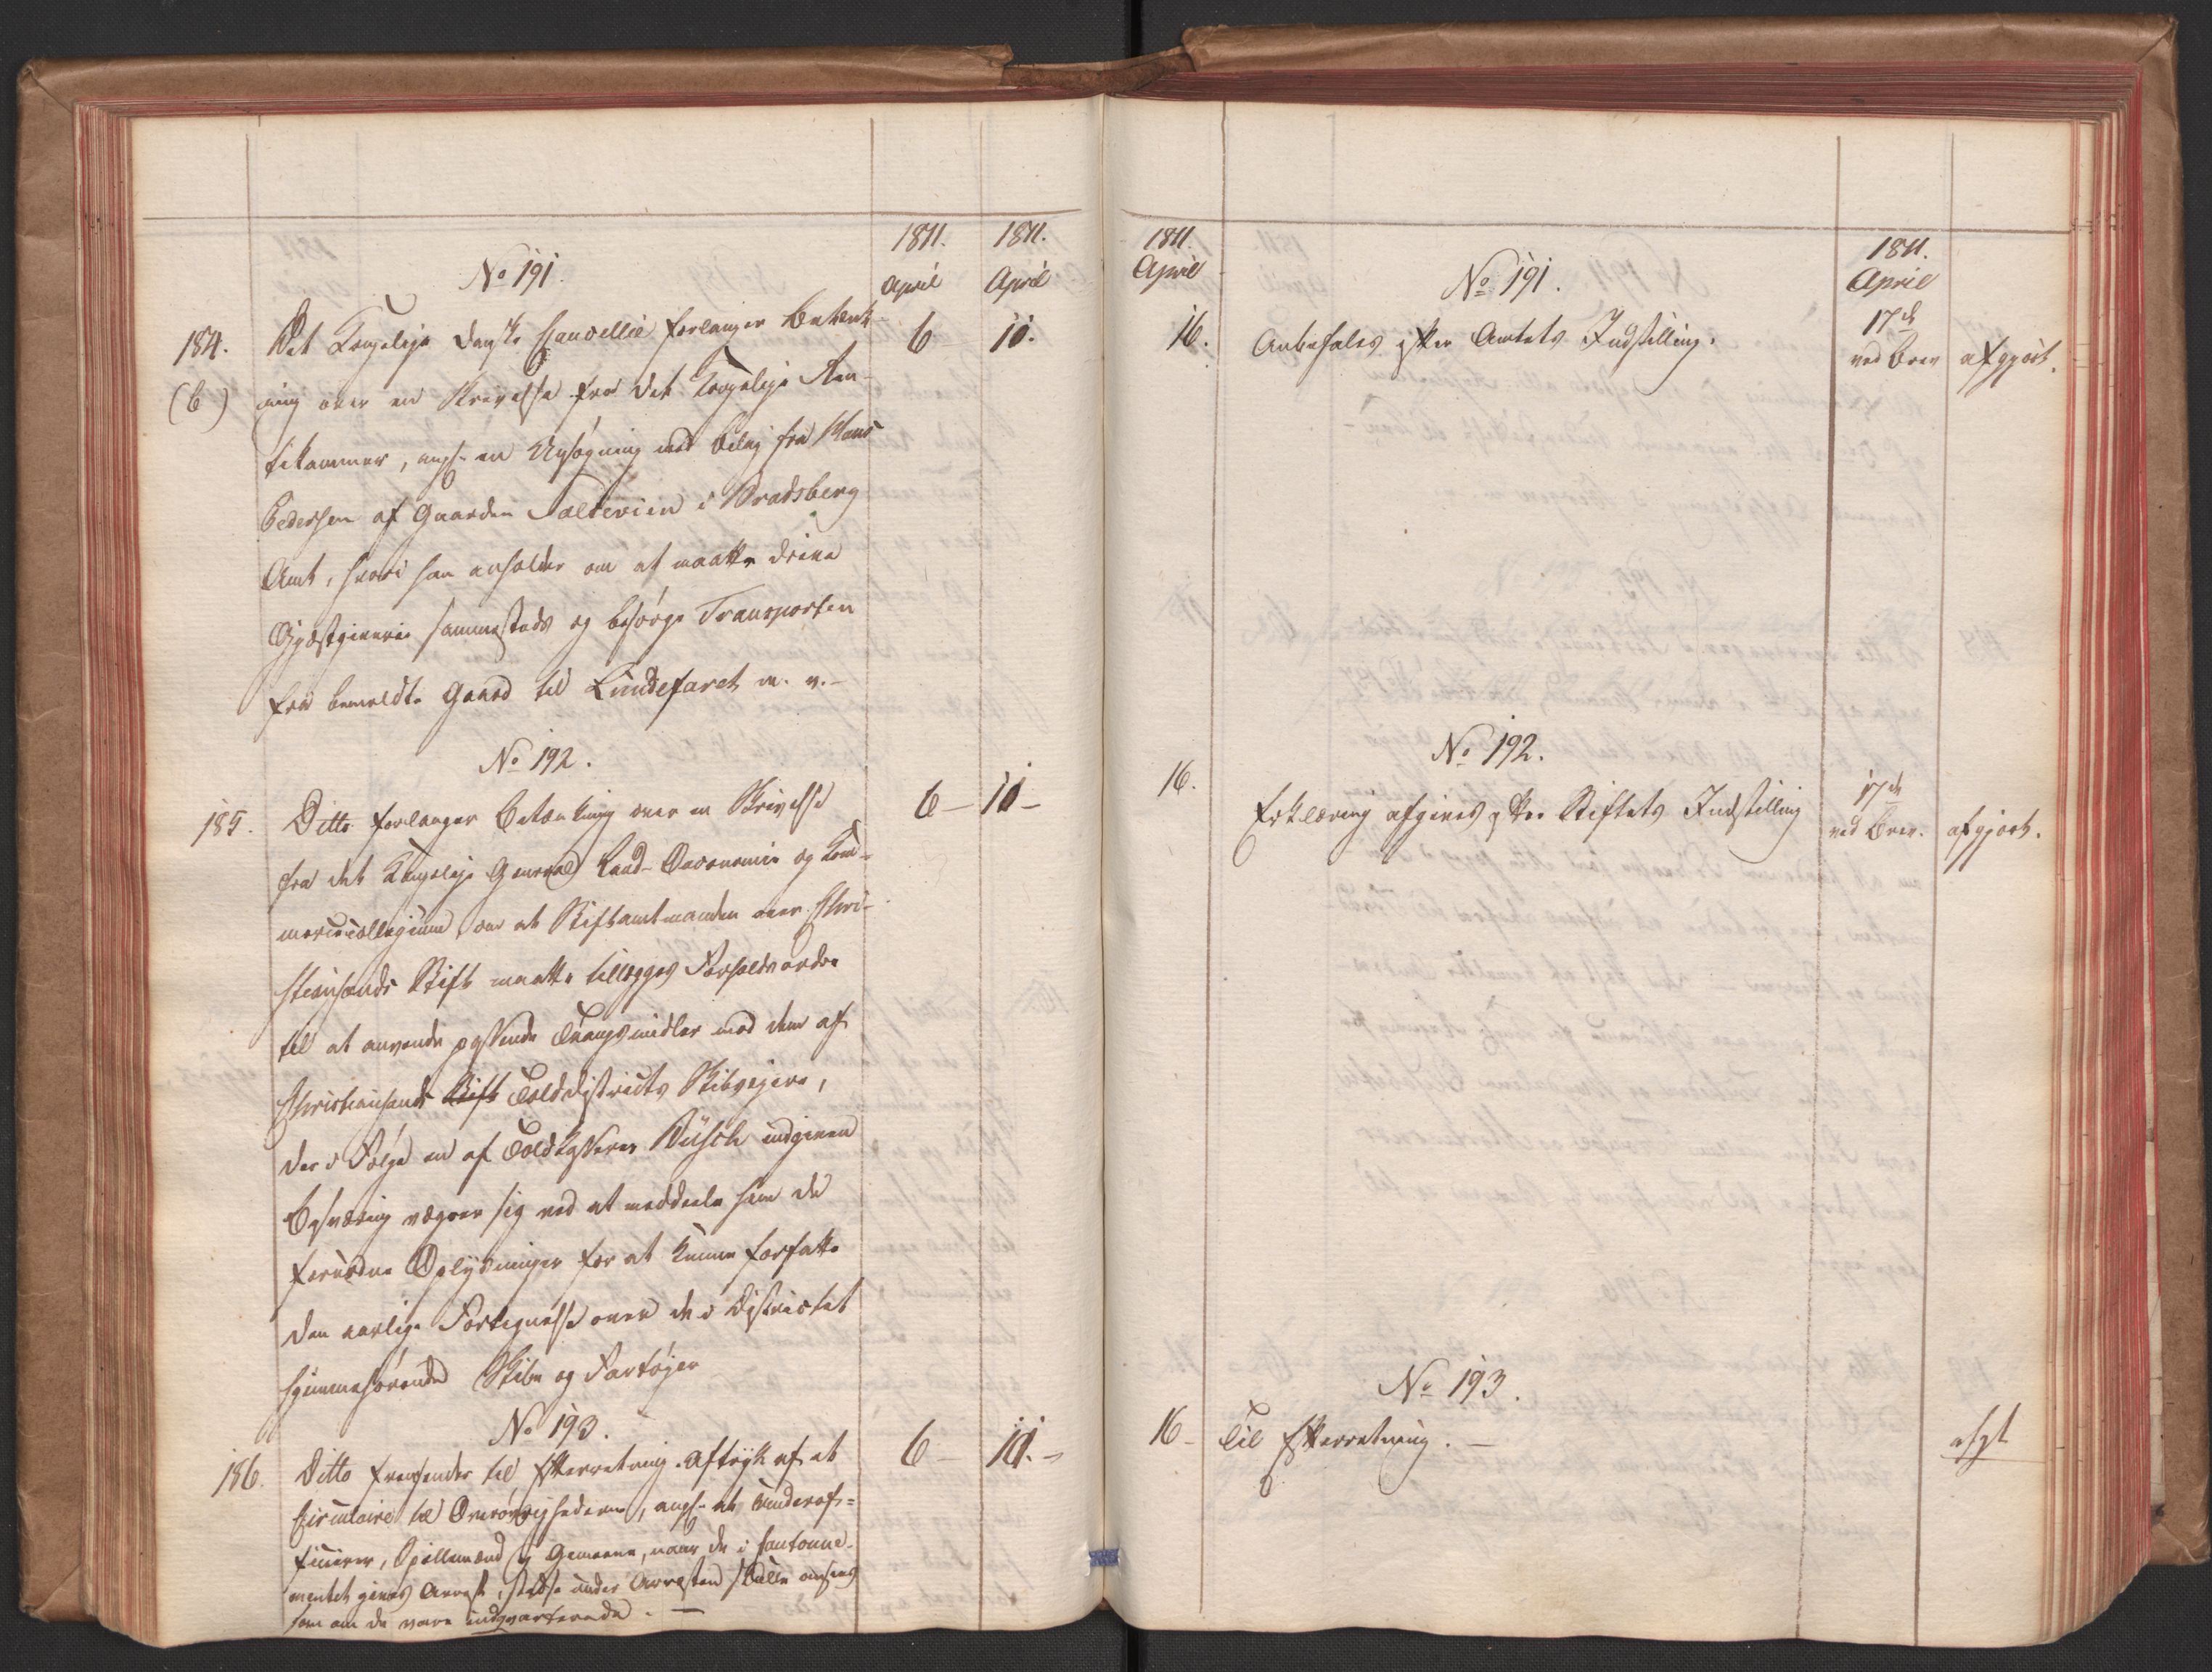 1811. 1811.
April April
No 191.
184. Det Kongelige danske Cancellie forlanger Betænk- 6 11.
(b) ning over en Skrivelse fra det Kongelige Ren-
tekammer, angl. en Ansøgning med Bilag fra Hans
Pedersen af Gaarden i Bradsberg
Amt, hvori han anholder om at maatte drive
Gjæstgiverie sammesteds og besørge Transporten
fra bemeldte Gaard til Lundefaret m. v. -
No 192.
185. Ditto forlanger Betænkning over en Skrivelse 6 - 11 -
fra det Kongelige General Land-Oeconomie og Com-
mercecollegium, om at Stiftamtmanden over Chri-
stiansands Stift maatte tillægges Forholdsordre
til at anvende passende Tvangsmidler mod dem af
Christiansands Stift Tolddistricts Skibseiere,
der i Følge en af Toldkasserer Büsch indgiven
Besværing vægrer sig ved at meddeele ham de
fornødne Oplysninger for at kunne forfatte
den aarlige Fortegnelse over de i Districtet
hjemmehørende Skibe og Fartøjer
No 193.
186. Ditto fremsender til Efterretning Aftryk af et 6 - 11. -
Circulaire til Overøvrighederne, angl. at Underof-
ficierer, Spillemænd og Gemeene, naar de i Cantonne-
mentet gives Arrest, stedse under Arresten skulle ansees
som om de vare indqvarterede. -
1811. 1811.
April April
No 191.
16. Anbefales efter Amtets Indstilling. 17de
ved Brev afgjort.
No 192.
16. Erklæring afgives efter Stiftets Indstilling 17de
ved Brev. afgjort.
No 193.
16 - Til Efterretning. - afgt